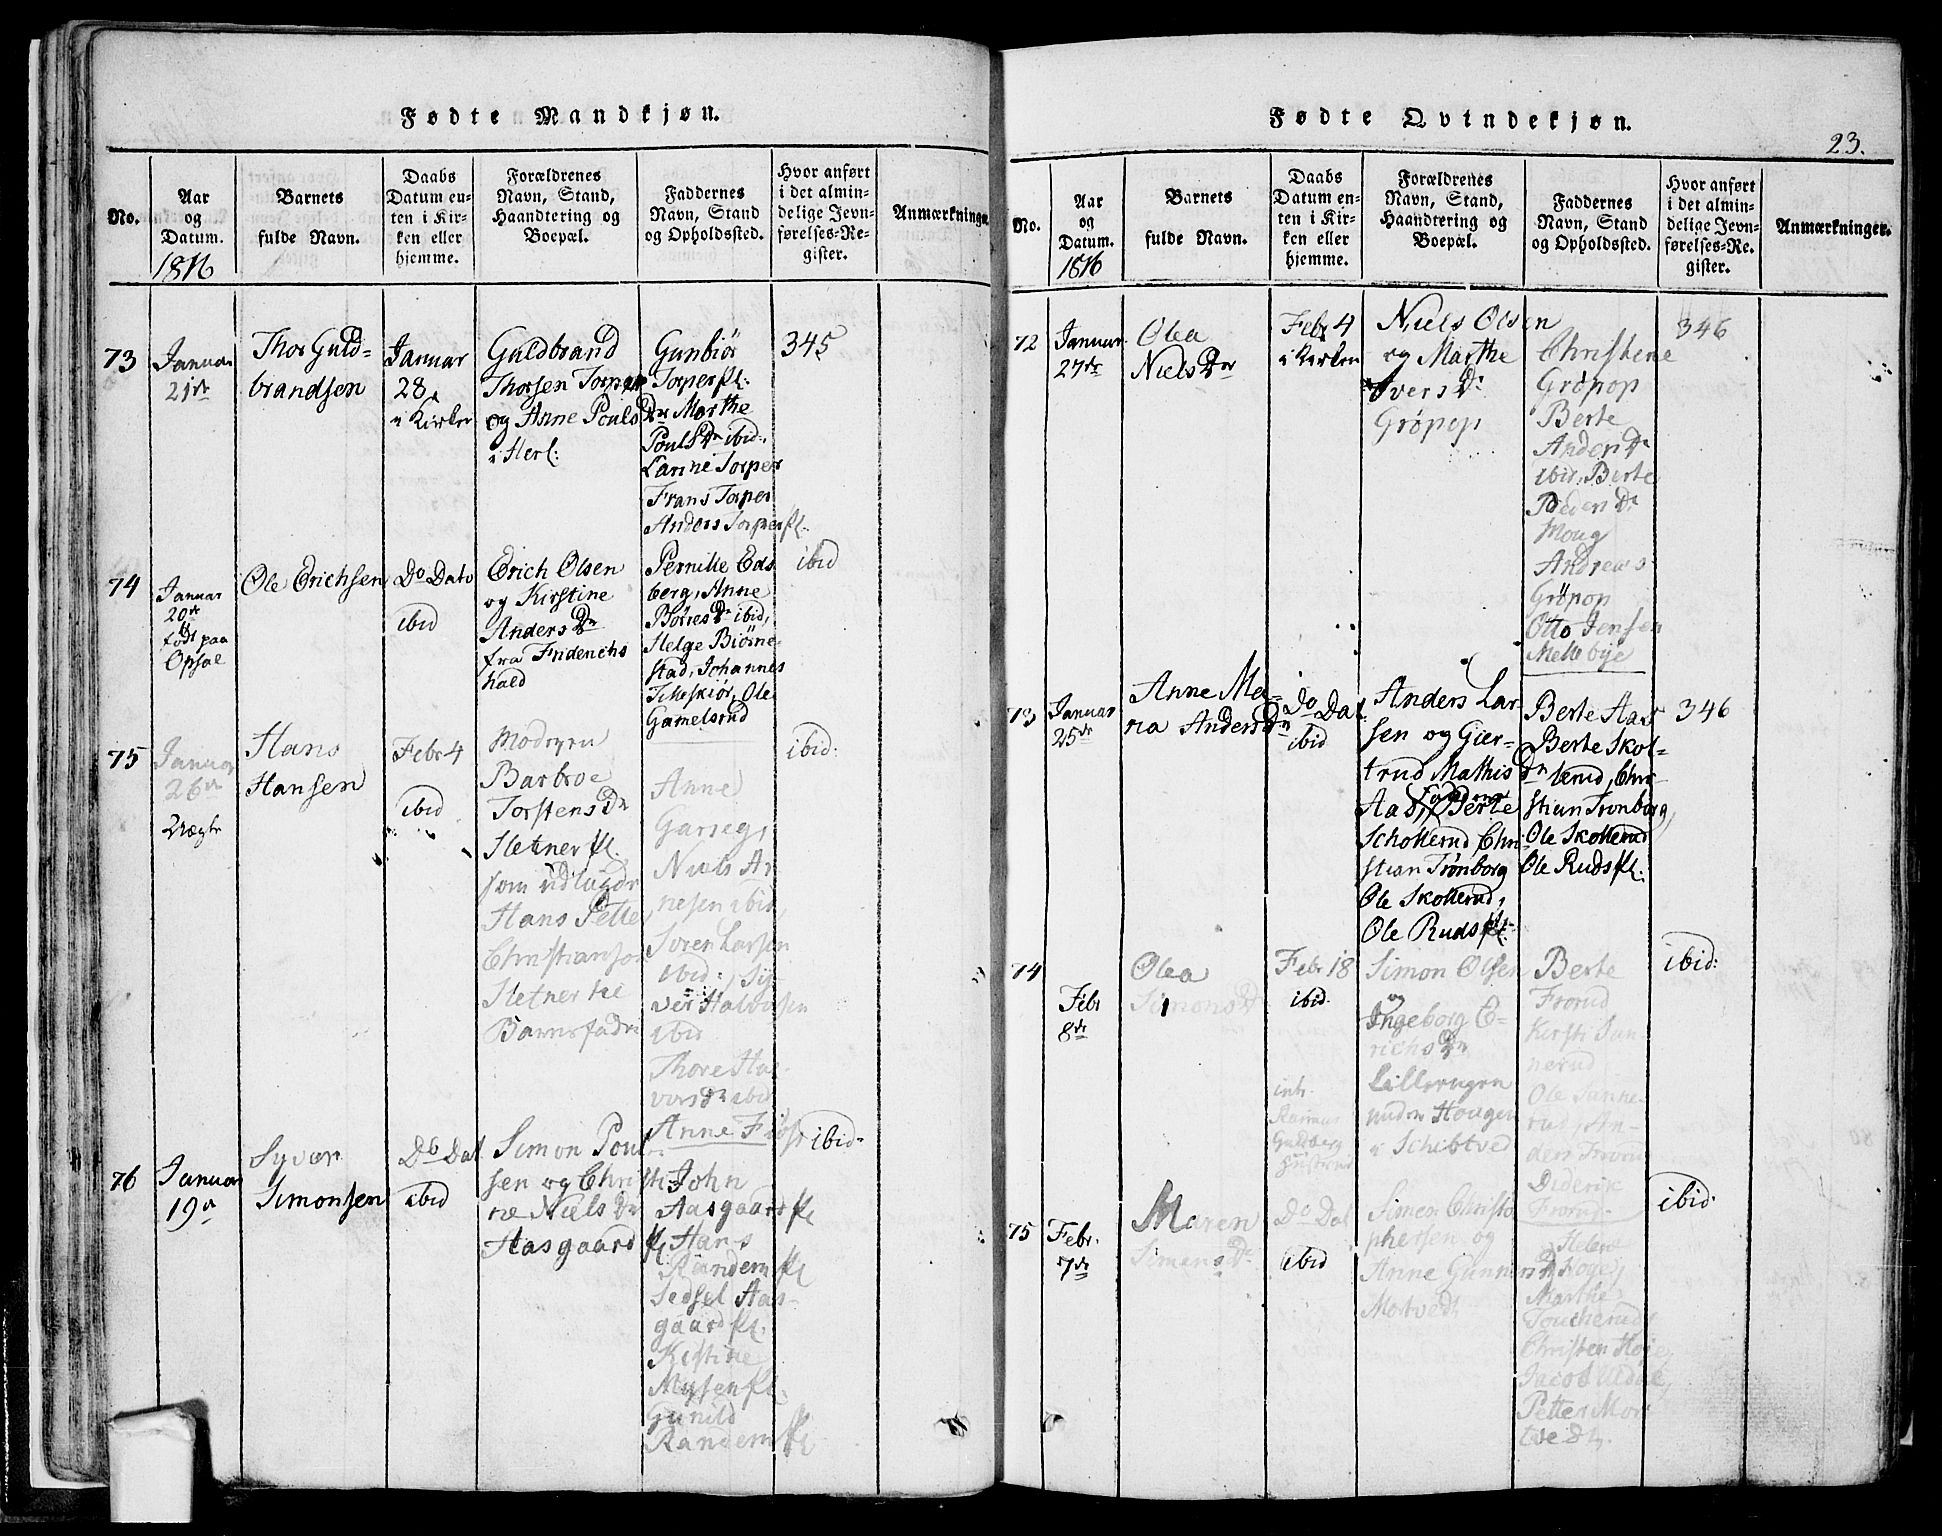 Fødte Mandkjøn.
No.
Aar
og
Datum.
1816
Barnets
fulde Navn.
Daabs
Datum en-
ten i Kir-
ken eller
hjemme.
Forældrenes
Navn, Stand,
Haandtering og
Boepæl.
Faddernes
Navn, Stand
og Opholdssted.
Hvor anført
i det almin-
delige Jevn-
førelses-Re-
gister.
Anmærkninger
73
Januar
21de
Thor Guld-
brandsen
Januar
28
i Kirken
Guldbrand
Thorsen Torper
og Anne Pouls Dr
i Herl:
Gunbiør
Torper fl:
Marthe
Pouls Dr ibid:,
Torper
Frans Torper
Anders Torper fl.
345
74
Januar
20de
født paa
Opsae
Ole Erichsen
Do Dato
ibid
Erich Olsen
og Kirstine
Anders Dr
fra Friderichs
hald
Pernille Eds
berg, Anne
Børres Dr ibid,
Helge Biørne
stad, Johannes
Ole
Gamelsrud
ibid
75
Januar
26de
Uægte
Hans
Hansen
Febr 4
ibid
Modren
Barbroe
Torstens Dr
Sletner fl.
som udlagde
Hans Petter
Christiansen
Sletner til
Barnefader
Anne
Garseg,
Niels Ar
nesen ibid,
Soren Larsen
ibid:, Sy
ver Halvorsen
ibid
Thore Hal
vors Dr ibid
ibid:
76
Januar
19de
Syver
Simonsen
Do Dat
ibid
Simon Poul
sen og Christi
ne Niels Dr
Aasgaard fl
Anne
John
Aasgaard fl
Hans
Randem fl
Sedsel Aas-
gaard fl.
Kistine
Mysen fl.
Gunild
Randem fl
ibid:
Fødte Qvindekjøn.
23.
No.
Aar
og
Datum.
1816
Barnets
fulde Navn.
Daabs
Datum en-
ten i Kir-
ken eller
hjemme.
Forældrenes
Navn, Stand,
Haandtering og
Boepæl.
Faddernes
Navn, Stand
og Opholdssted.
Hvor anført
i det almin-
delige Jevn-
førelses-Re-
gister.
Anmærkninger.
72
Januar
27de
Olea
Niels Dr
Febr 4
i Kirken
Niels Olsen
og Marthe
Ivers Dr
Grøpop
Christene
Grøpop
Berte
Anders Dr
ibid, Berte
Peders Dr
Moug
Andreas
Grøpop
Otto Jensen
Mellebye
346
73
Januar
25de
Anne Ma-
ria Anders Dr
Do Dat
ibid
Anders Lar
sen og Gier-
trud Mathis Dr
Aas, Faddere Berte
Schollerud Chri
stian Trønborg
Ole Skollerud,
Ole Ruds fl.
Berte Aas
Berte Skol-
lerud, Chri-
stian Tronborg,
Ole Skollerud
Ole Ruds fl.
346
74
Febr
8de
Olea
Simons Dr
Febr 18
ibid.
Simon Olsen
og
Ingeborg E-
richs Dr
under Hougen
i Schibtved
Berte
Frorud
Kirsti San-
nerud
Ole Sanne-
rud, An-
ders Frorud
Diderik
Frorud
ibid:
75
Febr.
7de
Maren
Simons Dr
Do Dat
ibid
Simen Christo
phersen og
Anne Gunners Dr
Mortvedt
Helene
Hoye,
Marthe
Toucherud
Christen Hoie,
Jacob
Petter Mort
tvedt.
ibid: